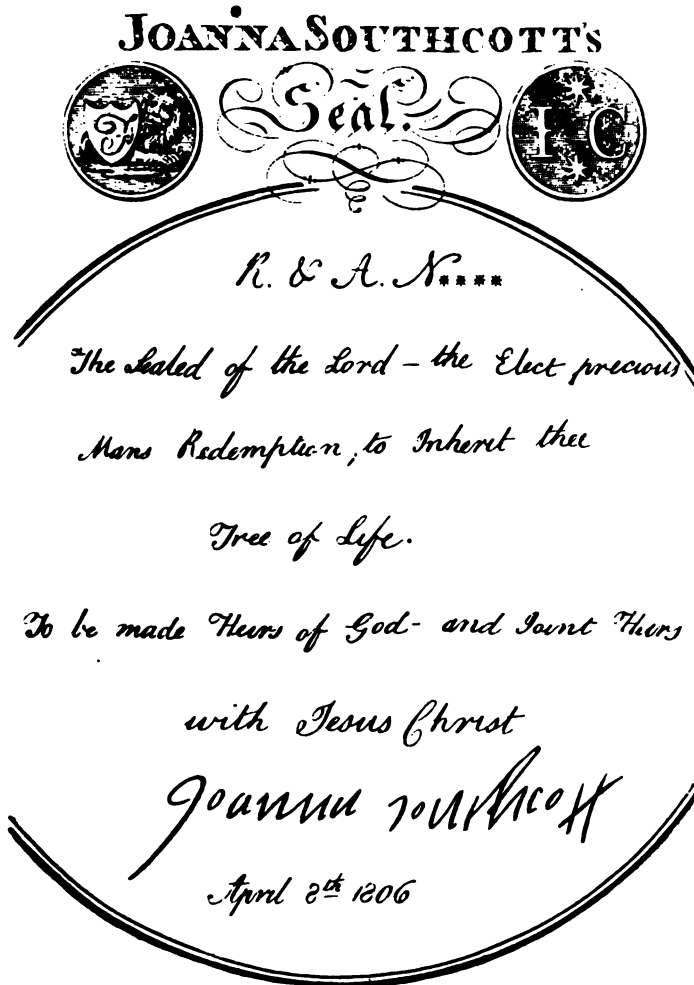 JOANNA SOUTHCOTT's
Seal.
I C
R. & A. N****
The Sealed of the Lord – the Elect precious
Mans Redemption, to Inherit thee
Tree of Life.
To be made Heirs of God - and Joint Heirs
with Jesus Christ
Joanna Southcott
April 8th 1806